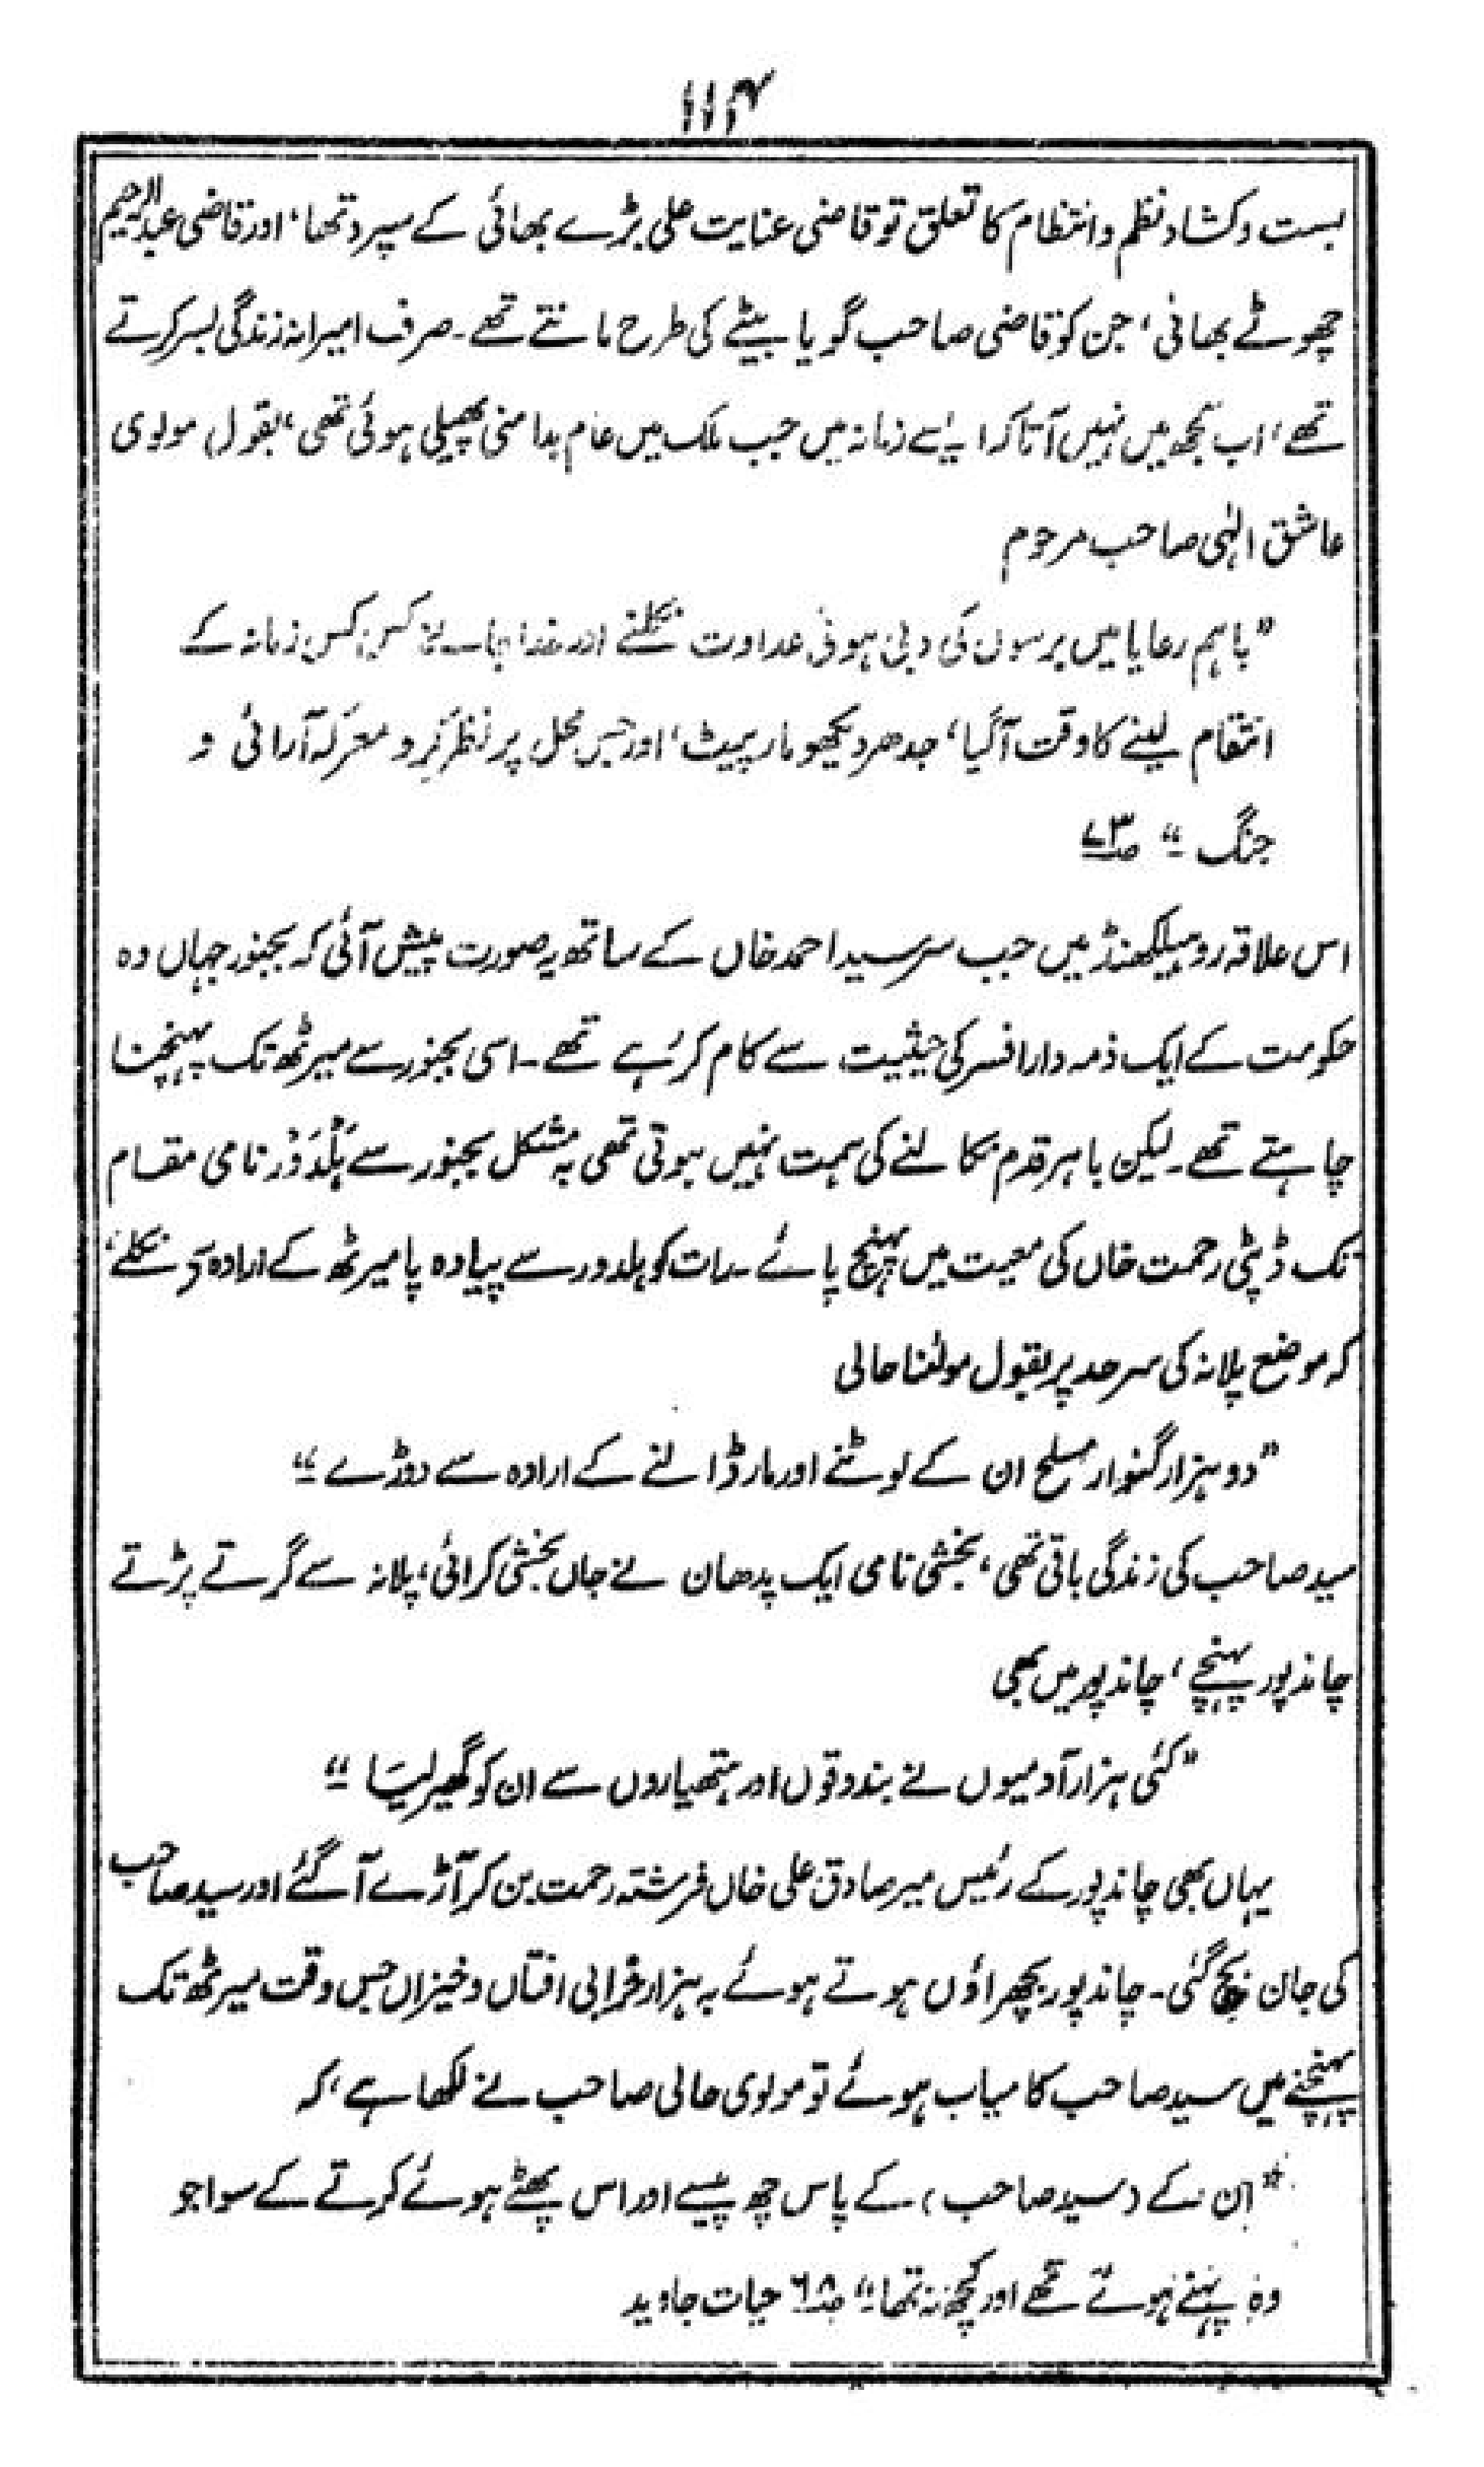 ۱۱۴
بست وکشاد نظم وانتظام کا تعلق تو قاضی عنایت علی بڑے بھائی کے سپرد تھا، اور قاضی عبدالرحیم
چھوٹے بھائی، جن کو قاضی صاحب گویا بیٹے کی طرح مانتے تھے۔ صرف امیرانہ زندگی بسر کرتے
تھے، اب سمجھ میں نہیں آتا کہ ایسے زمانہ میں جب ملک میں عام بدامنی پھیلی ہوئی تھی، بقول مولوی
عاشق الٰہی صاحب مرحوم
"باہم رعایا میں برسوں کی دبی ہوئی عداوت نکلنے اور خدا جانے کس کس زمانہ کے
انتقام لینے کا وقت آگیا، جدھر دیکھو مارپیٹ، اور جس محل پر نظر کرو معرکہ آرائی و
جنگ" ص۷۳
اس علاقہ روہیلکھنڈ میں جب سرسید احمد خاں کے ساتھ یہ صورت پیش آئی کہ بجنور جہاں وہ
حکومت کے ایک ذمہ دار افسر کی حیثیت سے کام کر رہے تھے۔ اسی بجنور سے میرٹھ تک پہنچنا
چاہتے تھے۔ لیکن باہر قدم نکالنے کی ہمت نہیں ہوتی تھی بہ مشکل بجنور سے ہَلْدَوْر نامی مقام
تک ڈپٹی رحمت خاں کی معیت میں پہنچ پائے۔ رات کو ہلدور سے پیادہ پا میرٹھ کے ارادہ سے نکلے،
کہ موضع پلانہ کی سرحد پر بقول مولٰنا حالی
"دو ہزار گنوار مسلح ان کے لوٹنے اور مار ڈالنے کے ارادہ سے دوڑے"
سید صاحب کی زندگی باقی تھی، بخشی نامی ایک پدھان نے جاں بخشی کرائی، پلانہ سے گرتے پڑتے
چاندپور پہنچے، چاندپور میں بھی
"کئی ہزار آدمیوں نے بندوقوں اور ہتھیاروں سے ان کو گھیر لیا"
یہاں بھی چاندپور کے رئیس میر صادق علی خاں فرشتہ رحمت بن کر آڑے آگئے اور سید صاحب
کی جان بچ گئی۔ چاندپور بچھراؤں ہوتے ہوئے بہ ہزار خرابی افتاں وخیزاں جس وقت میرٹھ تک
پہنچنے میں سید صاحب کامیاب ہوئے تو مولوی حالی صاحب نے لکھا ہے، کہ
"ان کے (سید صاحب) کے پاس چھ پیسے اور اس پھٹے ہوئے کرتے کے سوا جو
وہ پہنے ہوئے تھے اور کچھ نہ تھا" ص۶۸ حیات جاوید